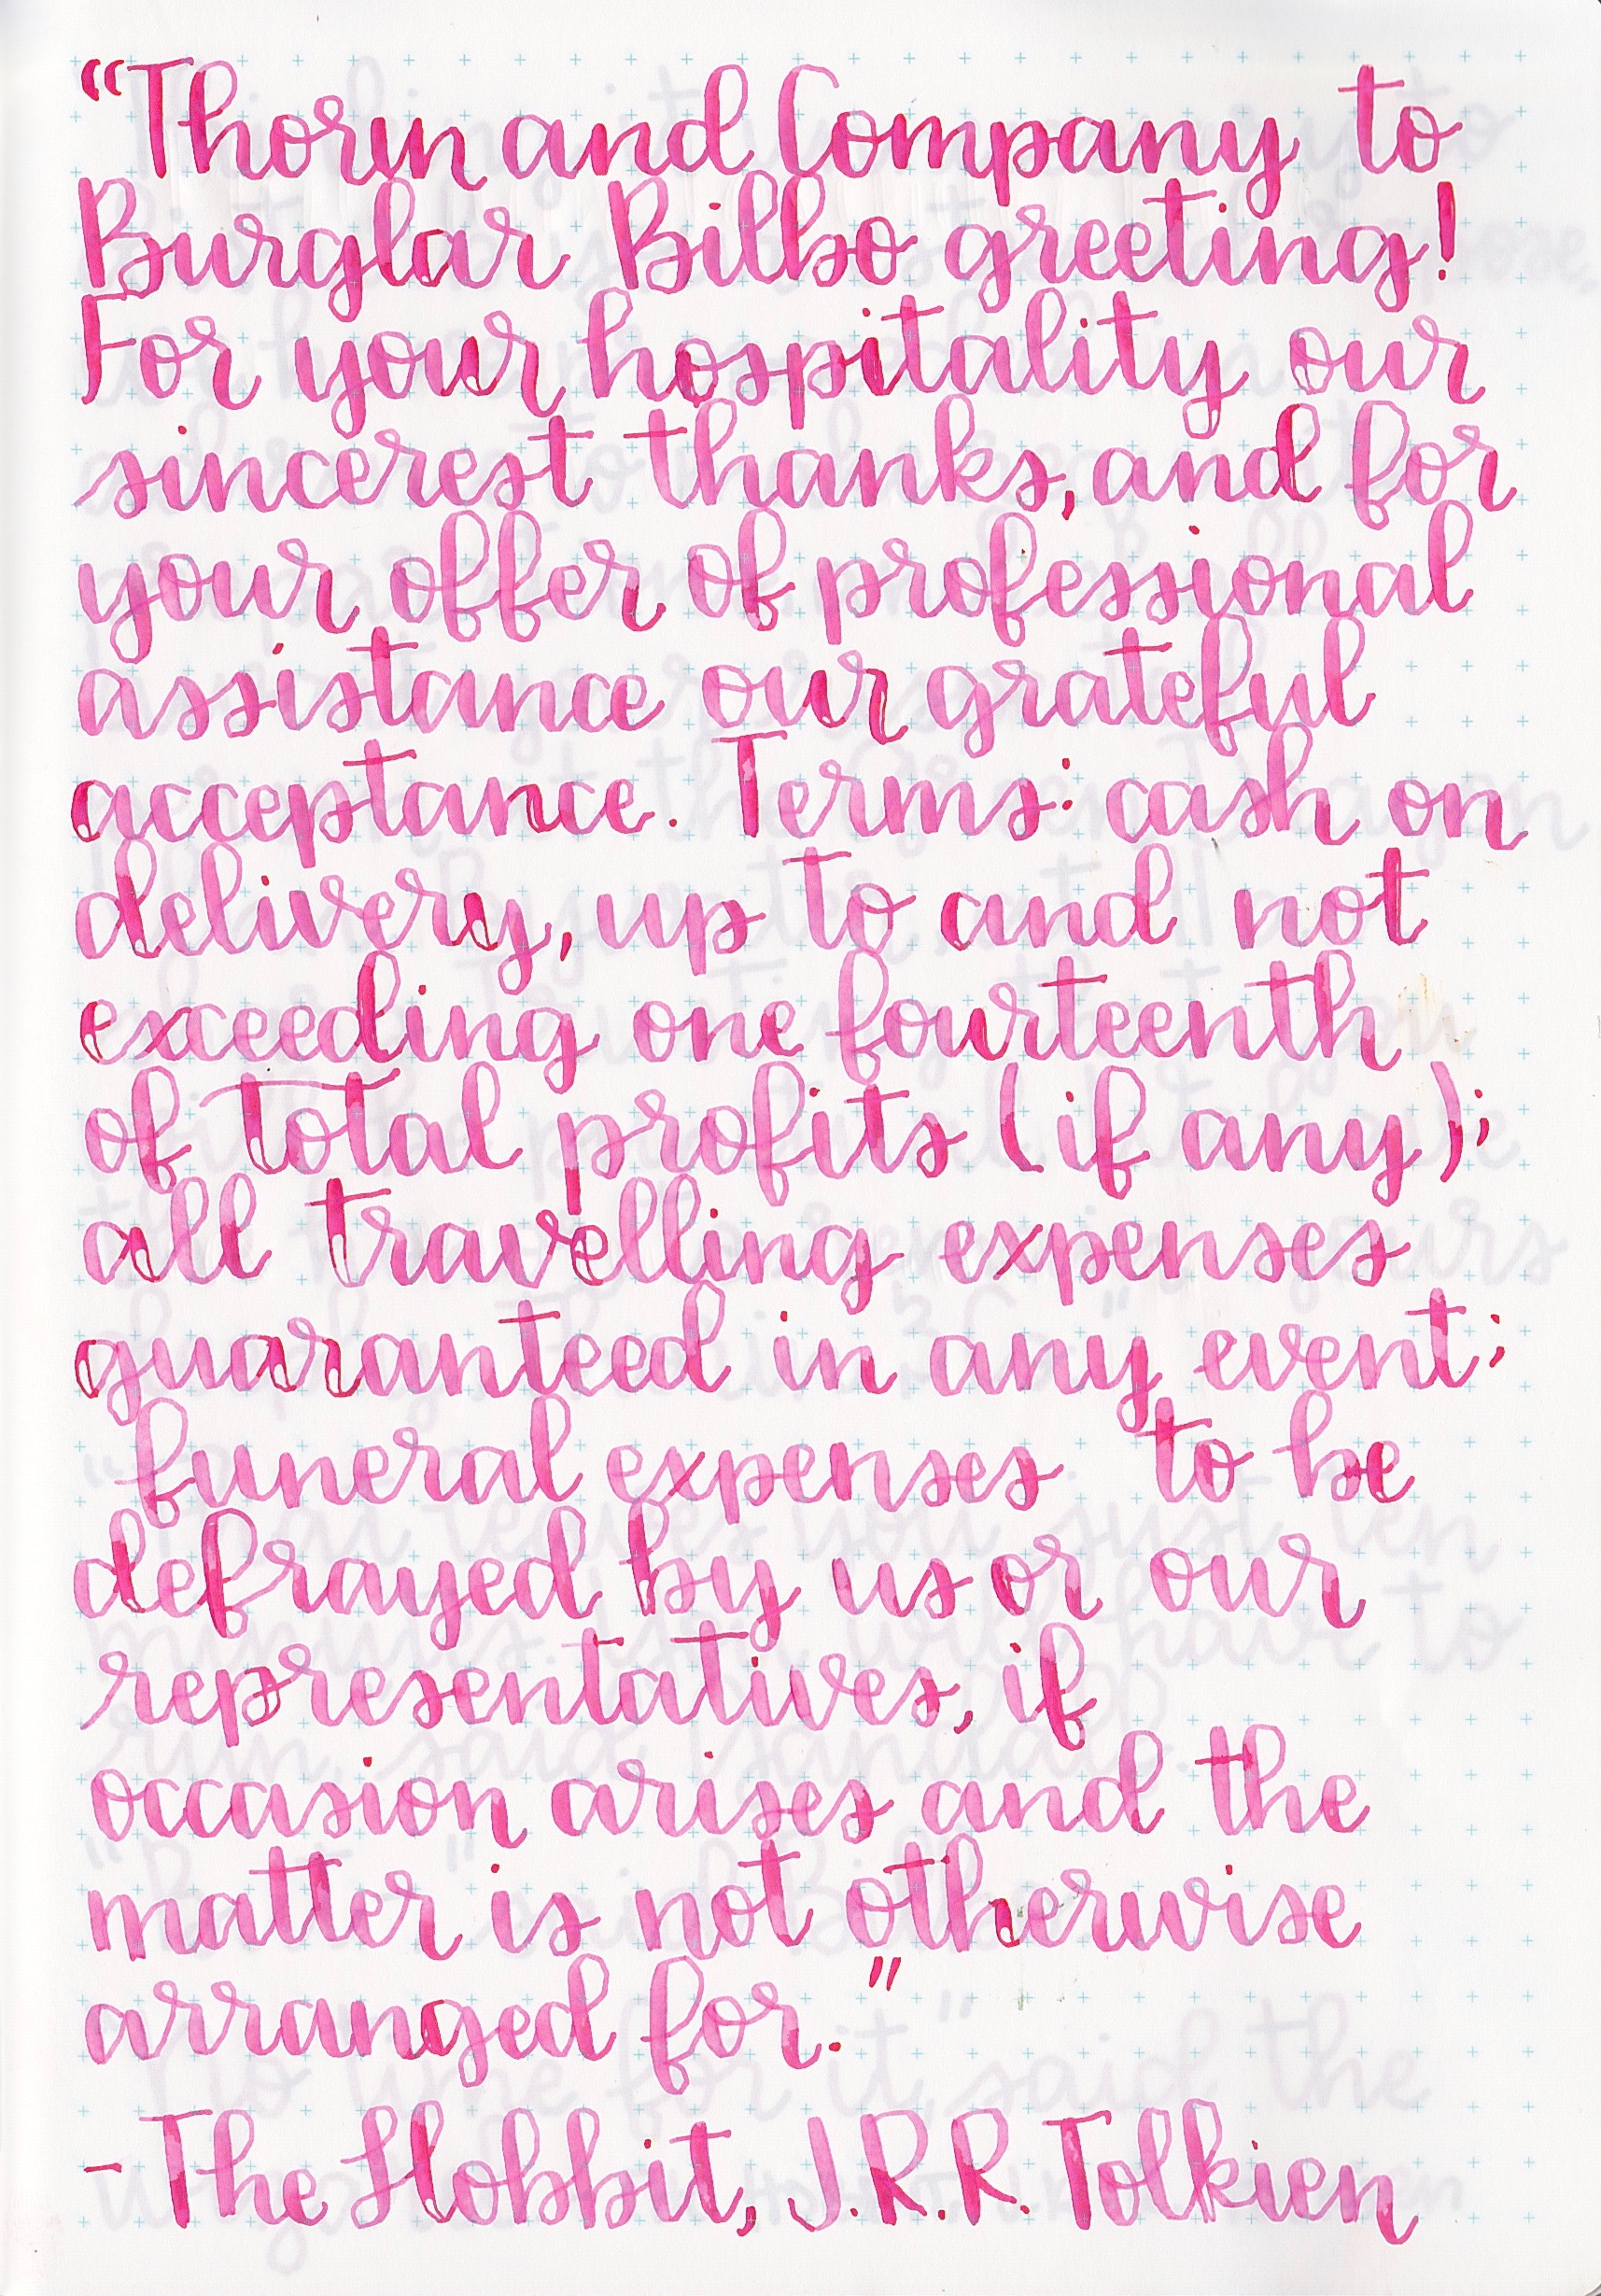 “Thorin and Company to
Burglar Bilbo greeting!
For your hospitality our
sincerest thanks, and for
your offer of professional
assistance our grateful
acceptance. Terms: cash on
delivery, up to and not
exceeding one fourteenth
of total profits (if any);
all travelling expenses
guaranteed in any event;
funeral expenses to be
defrayed by us or our
representatives, if
occasion arises and the
matter is not otherwise
arranged for.”
-The Hobbit, J.R.R. Tolkien